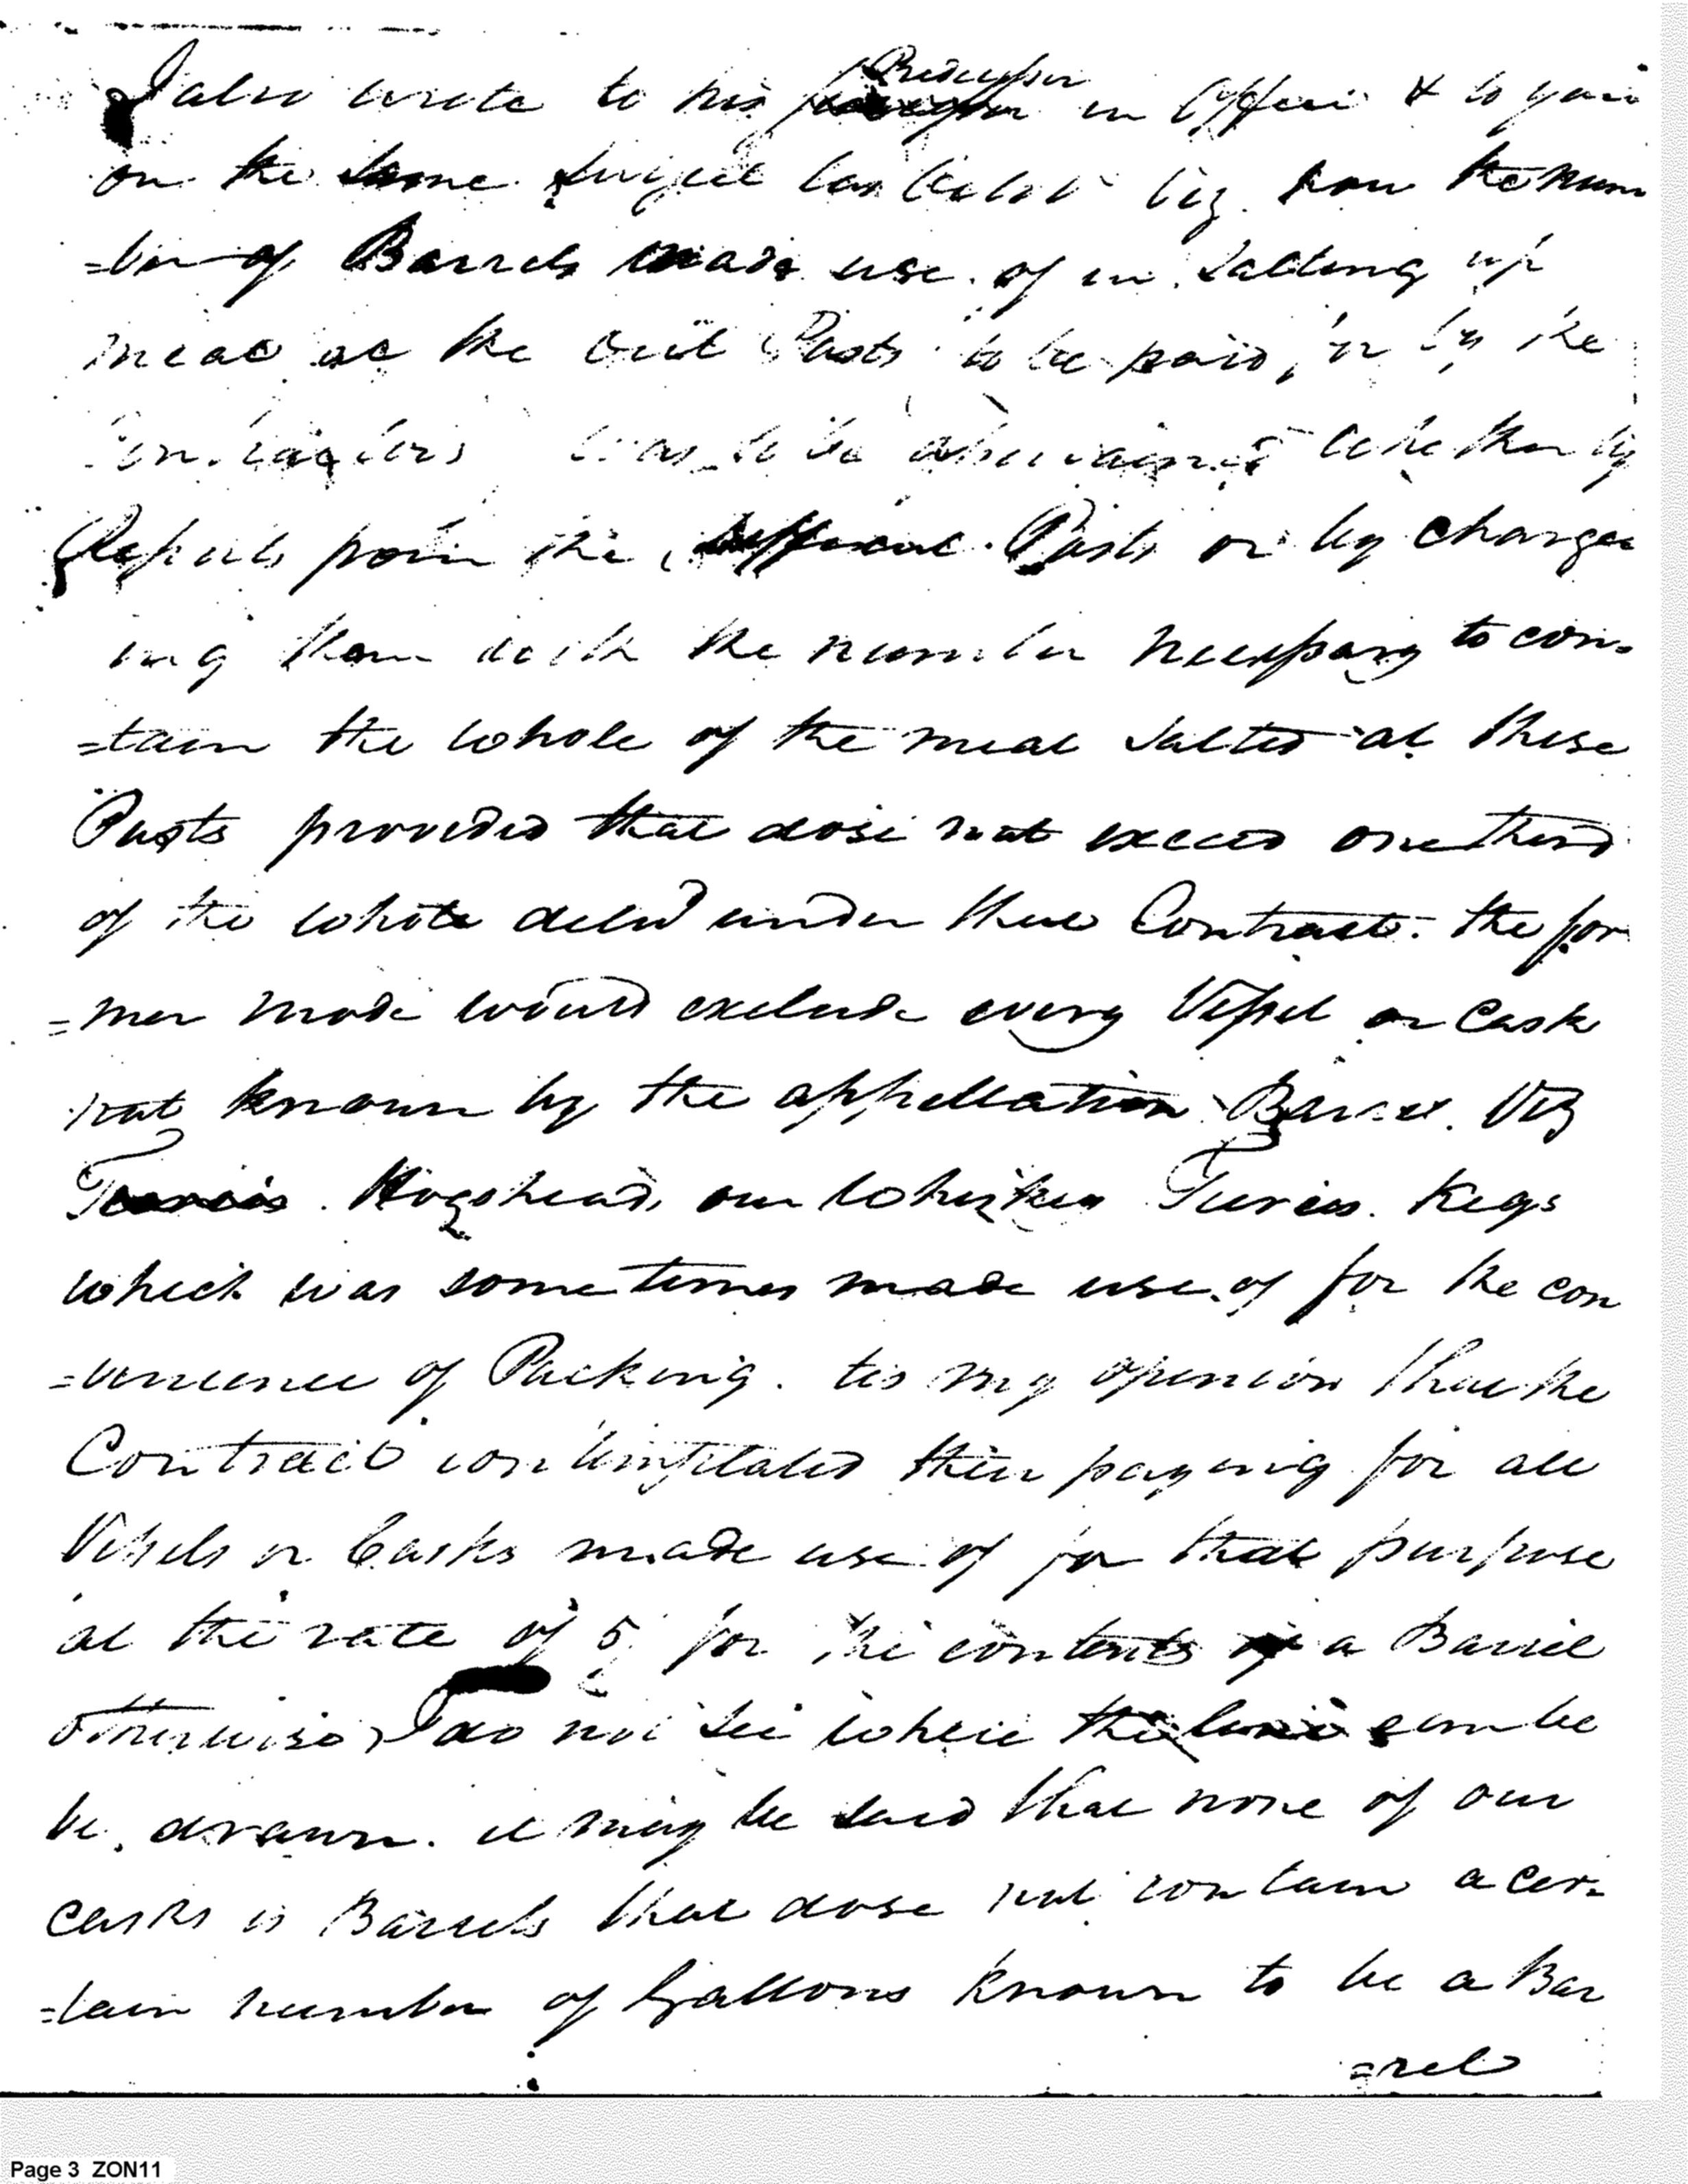 I also wrote to his Predecessor in Office & to you
on the same subject last Octobr Viz. how the num
=ber of Barrels made use of in Salting up
meat at the out Posts to be paid for by the
Contractors was to be ascertained whether by
Reports from the different Posts or by charge
ing them with the number necessary to con=
=tain the whole of the meat salted at these
Posts provided that dose not exceed one third
of the whole deld under their Contract. the for
=mer mode would exclude every Vessel or Cask
not known by the appellation Barrel. Viz
Tierces. Hogshead, our Whiskey Tierces. Kegs
which was some times made use of for the con
=venience of Packing. tis my openion that the
Contract contemplated their paying for all
Vessels or Casks made use of for that purpose
at the rate of 5 for the contents of a Barrel
otherwise I do not see where the line can be
be drawn. it may be said that none of our
casks is Barrels that dose not contain a cer=
=tain number of Gallons known to be a Bar
=rel
Page 3 ZON11